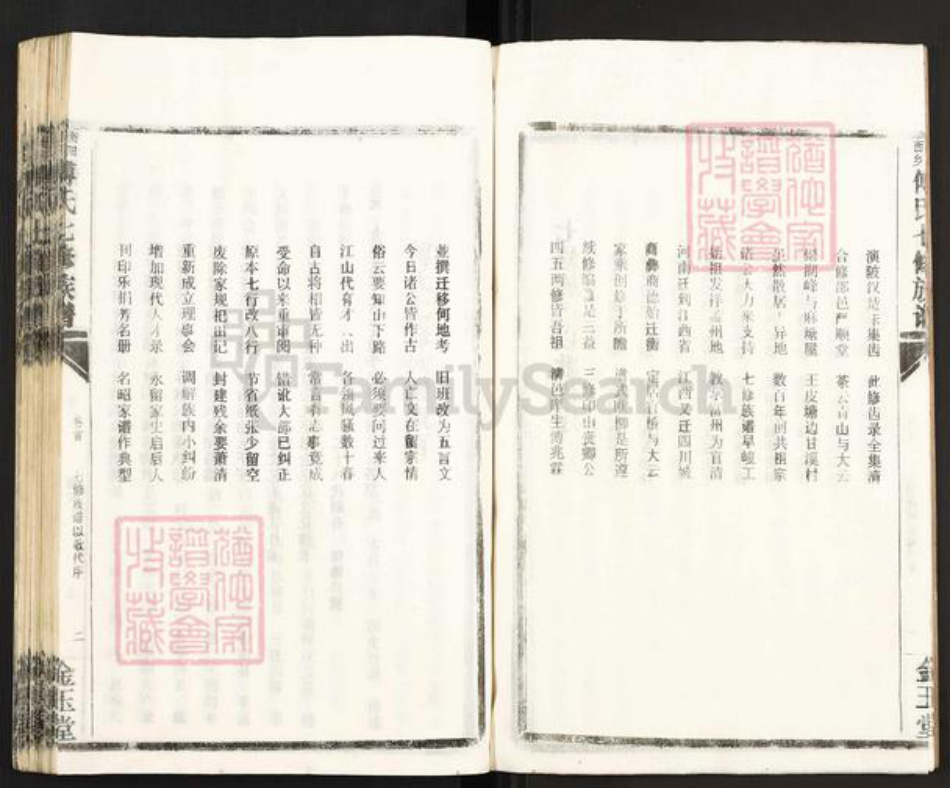 傅氏七修族谱
演陂汉楚卡集齿 此修齿录全集满
合修邵邑严顺堂 茶云青山与大云
与麻塘屋 王皮塘边甘溪村
虽然散居 异地 数百年前共祖宗
诸公大力来支持 七修族谱早峻工
始祖发祥孟州地 为官清
河南迁到江西省 江西又迁四川城
商彝商德始迁衡 定居官桥与大云
家乘创修于所瞻 是所遵
续修 是三益 三修印山袁卿公
四五两修皆吾祖 清邑庠生傅兆霖
並撰迁移何地考 旧班改为五言文
今日诸公皆作古 人亡文在留宗情
俗云要知山下路 必须要问过来人
江山代有才人出 各领风骚数十春
自古将相皆无种 常言有志事竟成
受命以来重审阅 错讹大部已纠正
原本七行改八行 节省纸张少留空
废除家规祀田记 封建残余要萧清
重新成立理事会 调解族内小纠纷
增加现代人才录 永留家史启后人
刊印乐捐芳名册 名昭家谱作典型
傅氏七修族谱
卷首
七修族谱以歌代序
二
金玉堂
金玉堂
猶他家譜學會收藏
猶他家譜學會收藏
FamilySearch